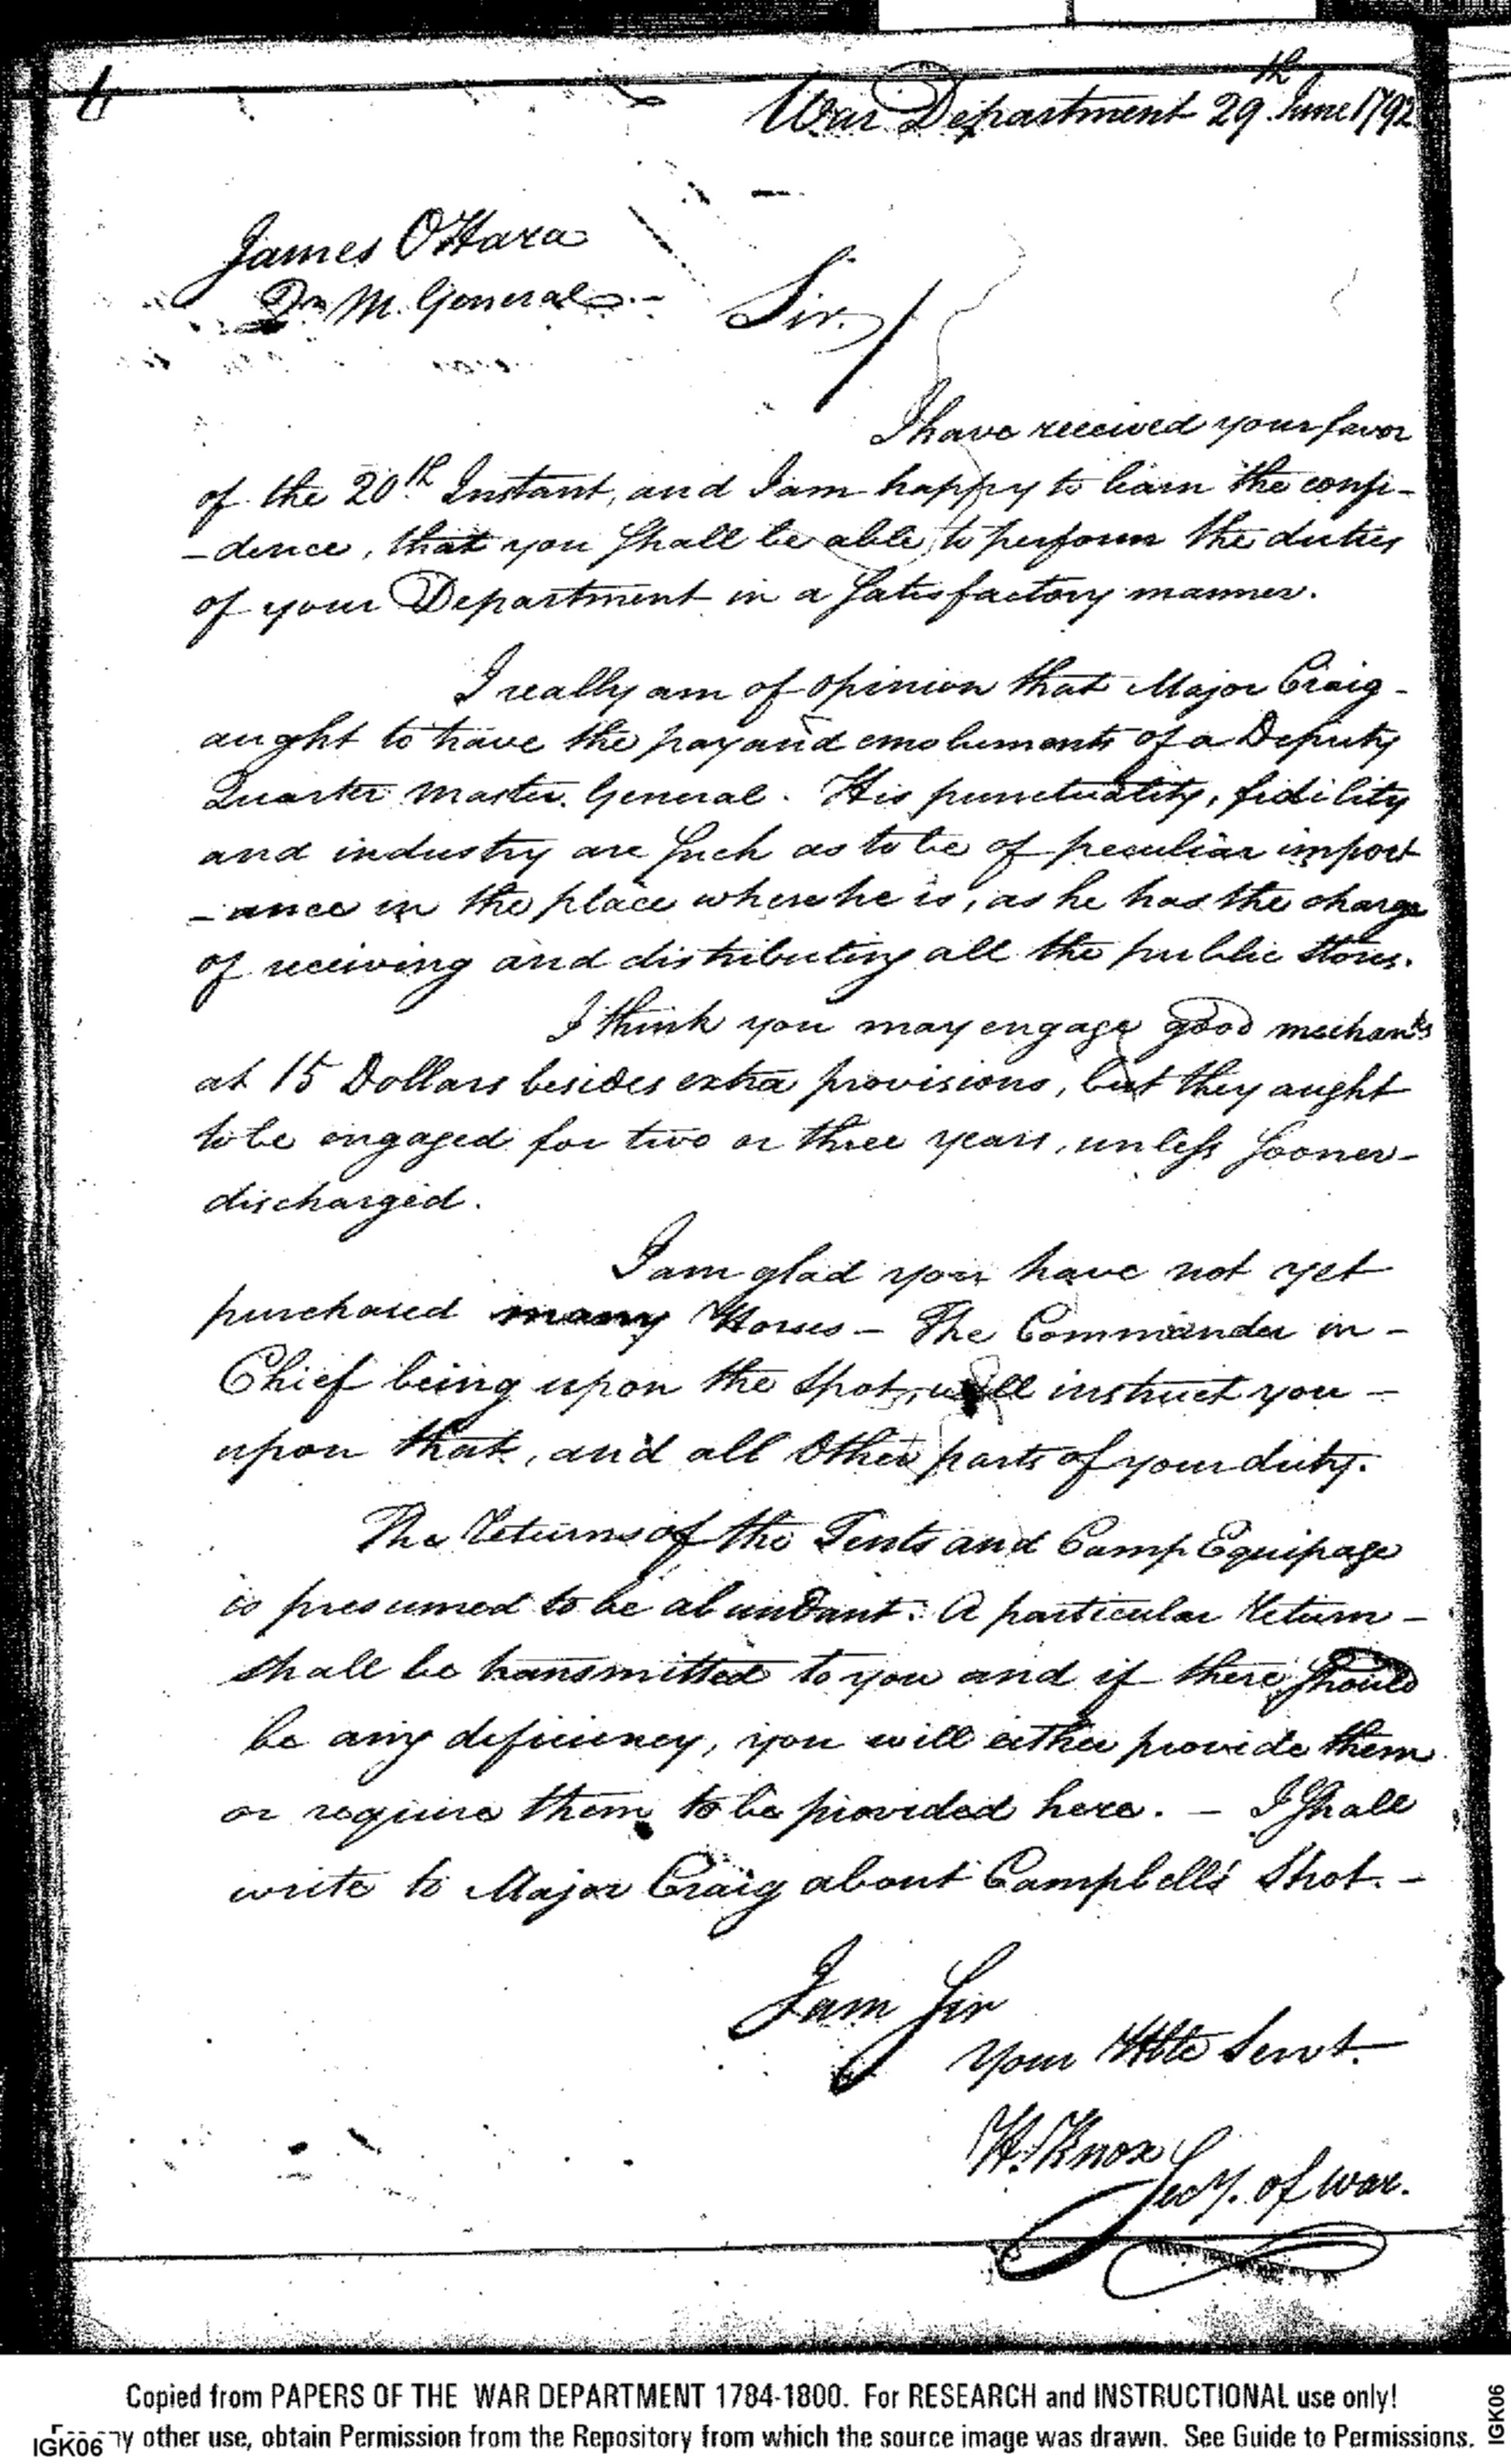 6
War Department 29th June 1792
James OHara
Qr M. General.-
Sir,
I have received your favor
of the 20th Instant, and I am happy to learn the confi-
-dence, that you shall be able to perform the duties
of your Department in a satisfactory manner.
I really am of opinion that Major Craig-
aught to have the pay and emoluments of a Deputy
Quarter Master General. His punctuality, fidility
and industry are such as to be of peculiar import
-ance in the place where he is, as he has the charge
of receiving and distributing all the public stores.
I think you may engage good mechanks
at 15 Dollars besides extra provisions, but they aught
to be engaged for two or three years, unless sooner-
discharged.
I am glad you have not yet
purchased many Horses- The Commander in-
Chief being upon the spot, will instruct you-
upon that, and all other parts of your duty.
The Returns of the Tents and Camp Equipage
is presumed to be abundant. A particular Return-
shall be transmitted to you and if there should
be any deficiency, you will either provide them
or require them to be provided here. - I shall
write to Major Craig about Campbells' Shot.-
I am Sir
Your Hble Servt.
H. Knox
Secy. of war.
Copied from PAPERS OF THE WAR DEPARTMENT 1784-1800. For RESEARCH and INSTRUCTIONAL use only!
IGK06 any other use, obtain Permission from the Repository from which the source image was drawn. See Guide to Permissions.
IGK06